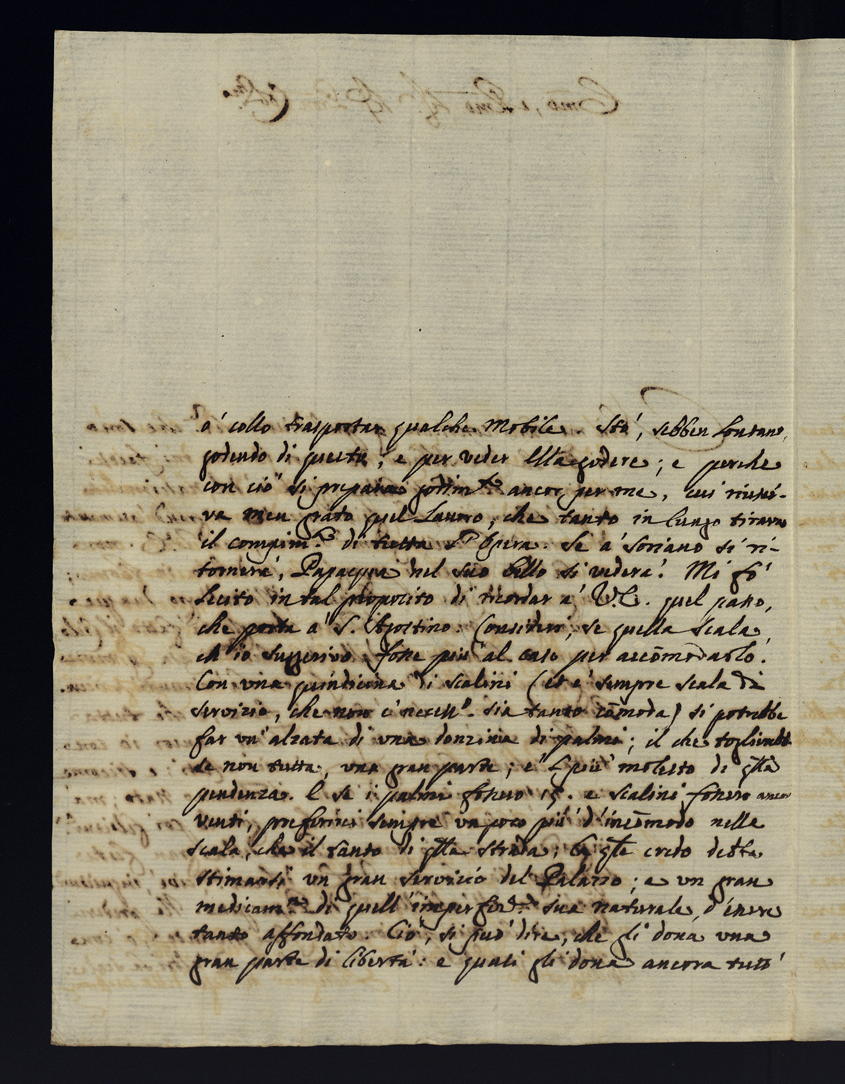 a' collo trasportar qualche Mobile. Stà, sebben lontano,
godendo di questa; e per veder Ella godere; e perche
con ciò si prepara godim.to ancor per me, cui riusci-
va men grato quel Lavoro, che tanto in lungo tirava
il compim.to di tutta l'Opera. Se a' Soriano si ri-
tornerà, Papacqua nel suo bello si vederà. Mi fò
lecito in tal proposito di ricordar a' V.E. quel passo,
che porta a S. Agostino. Consideri, se quella Scala,
ch'io suggerivo, fosse più al caso per accomodarlo.
Con una quindicina di scalini (et è sempre scala di
servizio, che non è necess.o sia tanto comoda) si potrebbe
far un'alzata di una donzina di palmi; il che toglierebbe
se non tutta, una gran parte; e 'l più molesto di q.lla
pendenza. E se i palmi fossero 15. e scalini fossero ancor
venti, preferirei sempre un poco più d'incomodo nella
scala, che il tanto di q.lla strada; la q.le credo debba
stimarsi un gran servizio del Palazzo; e un gran
medicam.to di quell'imperfez.e sua naturale, d'essere
tanto affondato. Ciò, si può dire, che gli dona una
gran parte di libertà: e quasi gli dona ancora tutt'